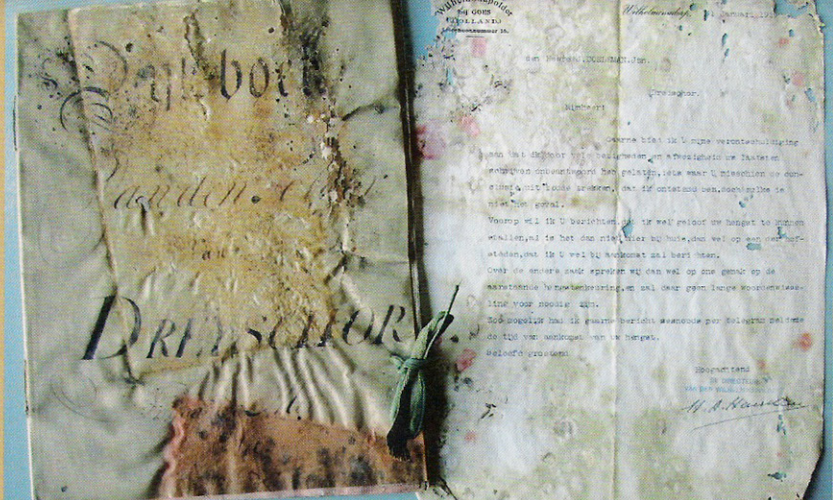 Dykboek
van den
van
DREYSCHOR
Wilhelminapolder
bij GOES
(HOLLAND)
Wilhelminadorp, Januari
den Heer
Jbn.
Dreischor.
Mijnheer!
Gaarne bied ik U mijne verontschuldiging
aan dat door vele bezigheden en afwezigheid uw laatste
schrijven onbeantwoord heb gelaten, iets waar U misschien de con-
clusie uit zoude trekken, dat ik ontstemd ben, doch zulks is
niet het geval.
Voorop wil ik U berichten, dat ik wel geloof uw hengst te kunnen
stallen, al is het dan niet hier bij huis, dan wel op een der hof-
steden, dat ik U wel bij aankomst zal berichten.
Over de andere zaak spreken wij dan wel op ons gemak op de
aanstaande hengstenkeuring, en zal daar geen lange woordenwisse-
ling voor noodig zijn.
Zoo mogelijk had ik gaarne bericht per telegram
de tijd van aankomst van uw hengst.
Beleefd groetend
Hoogachtend
DE DIRECTEUR
VAN DER